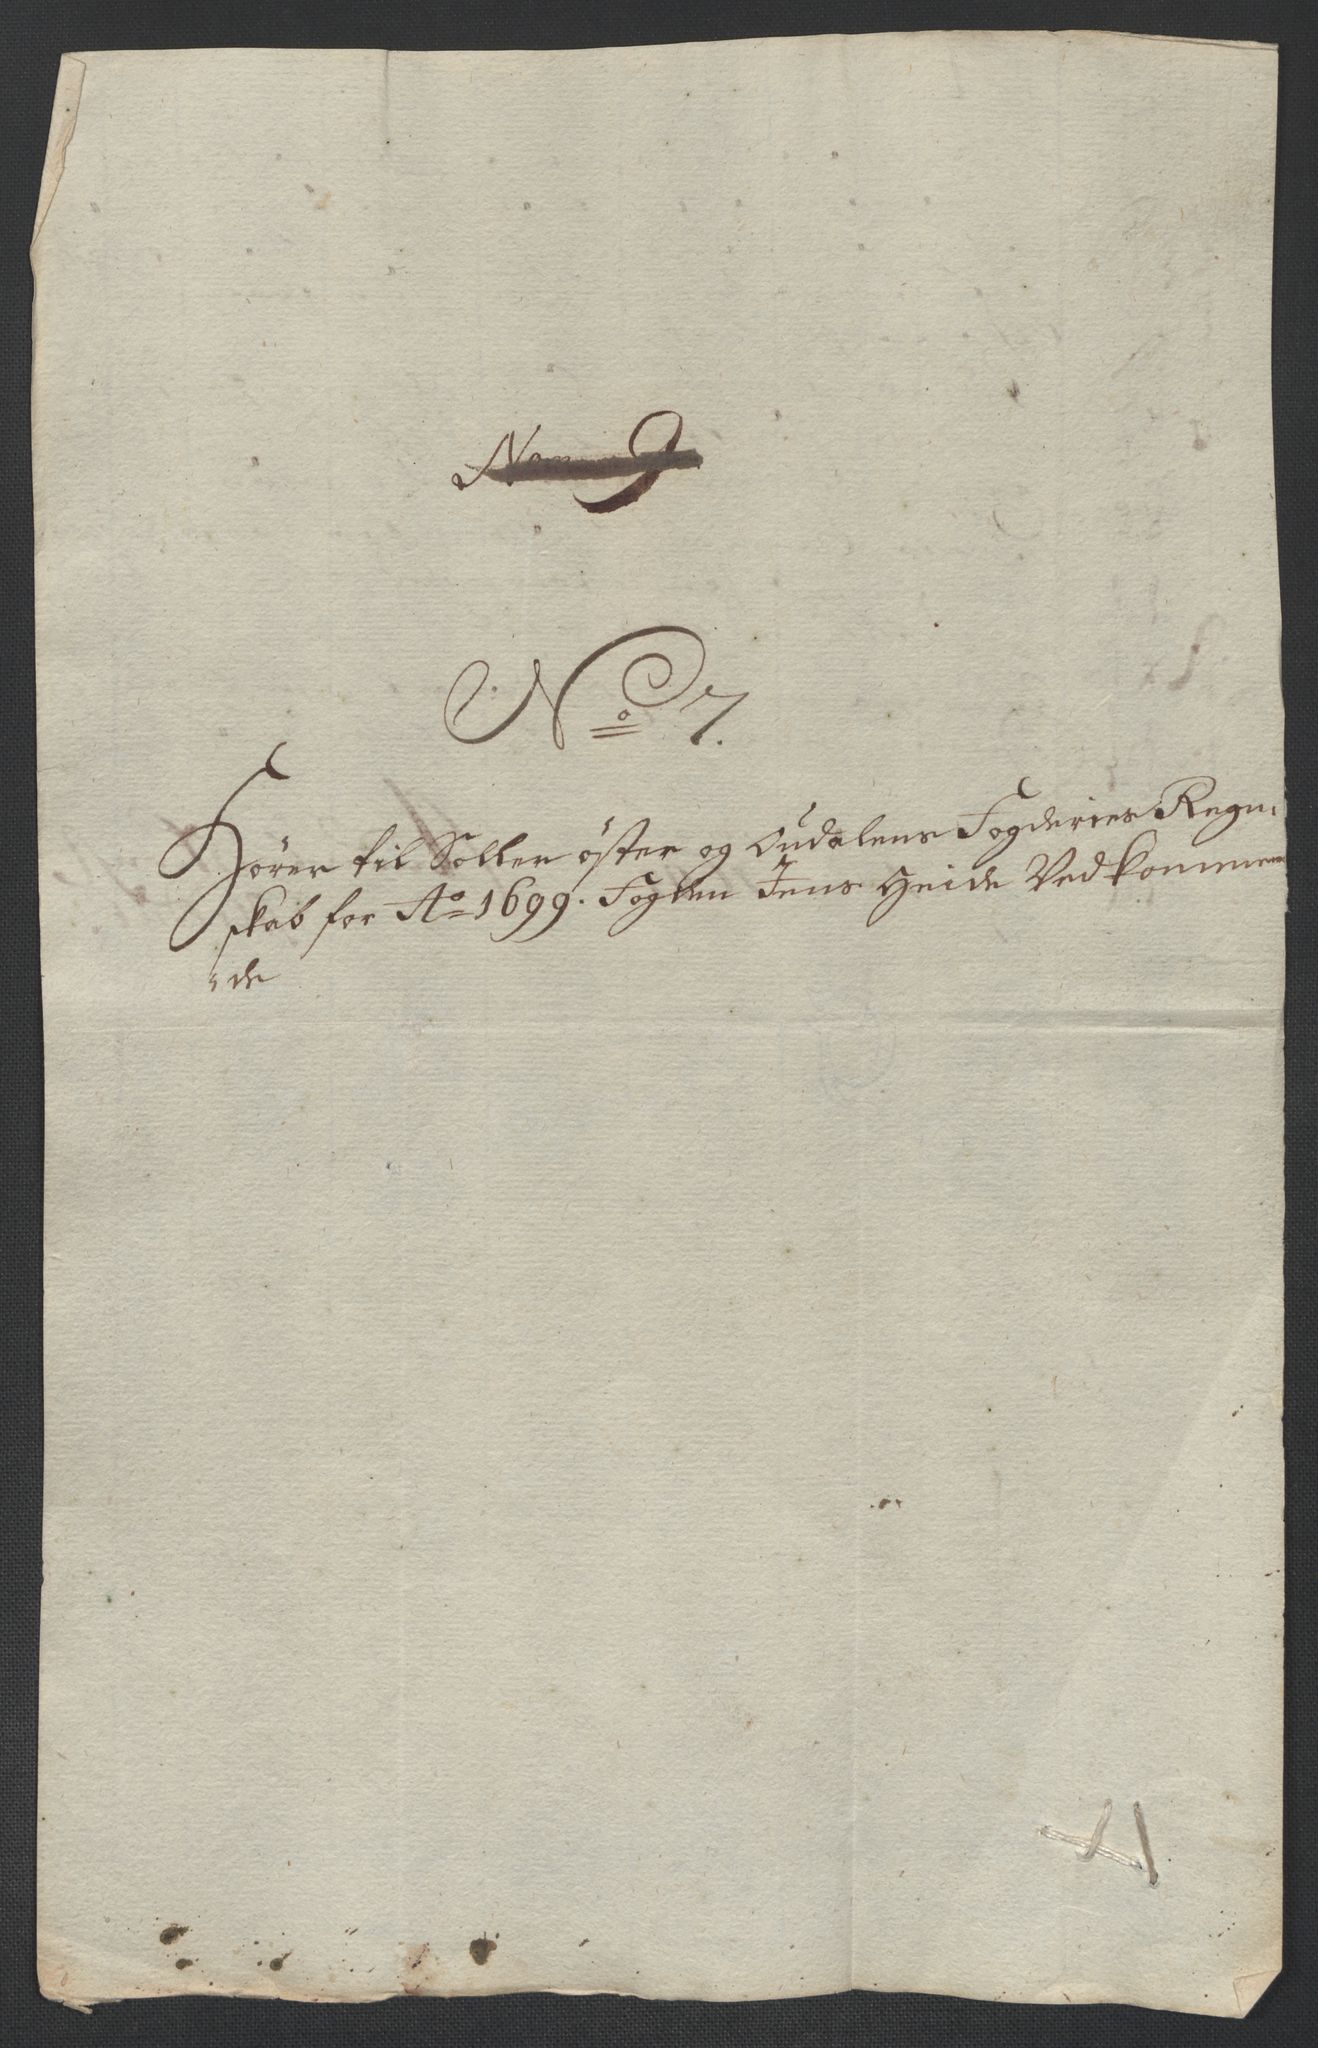 No 7.
Hörer til Soller öster og Oudalens Fogderies Regn,
skab for Ao 1699. Fogden Jens Heide Vedkommen
,de